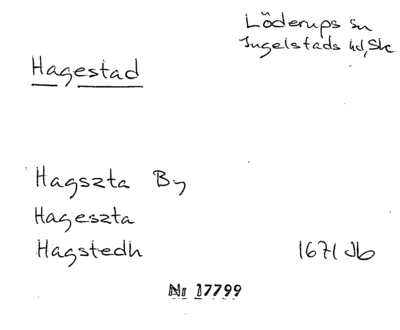 Löderups sn
Ingelstads hd, Sk
Hagestad
Hagszta By
Hageszta
Hagstedh 1671 Jb
Nr 17799